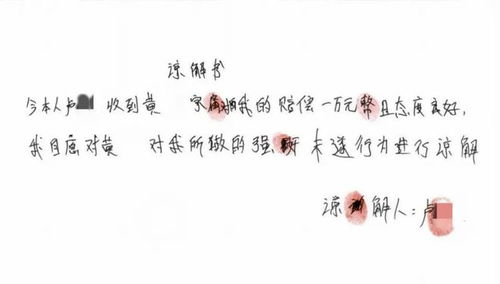 谅解书
今本人卢 收到黄 家属捐我的赔偿一万元整且态度良好,
我自愿对黄 对我所做的强奸未遂行为进行谅解
谅解人:卢